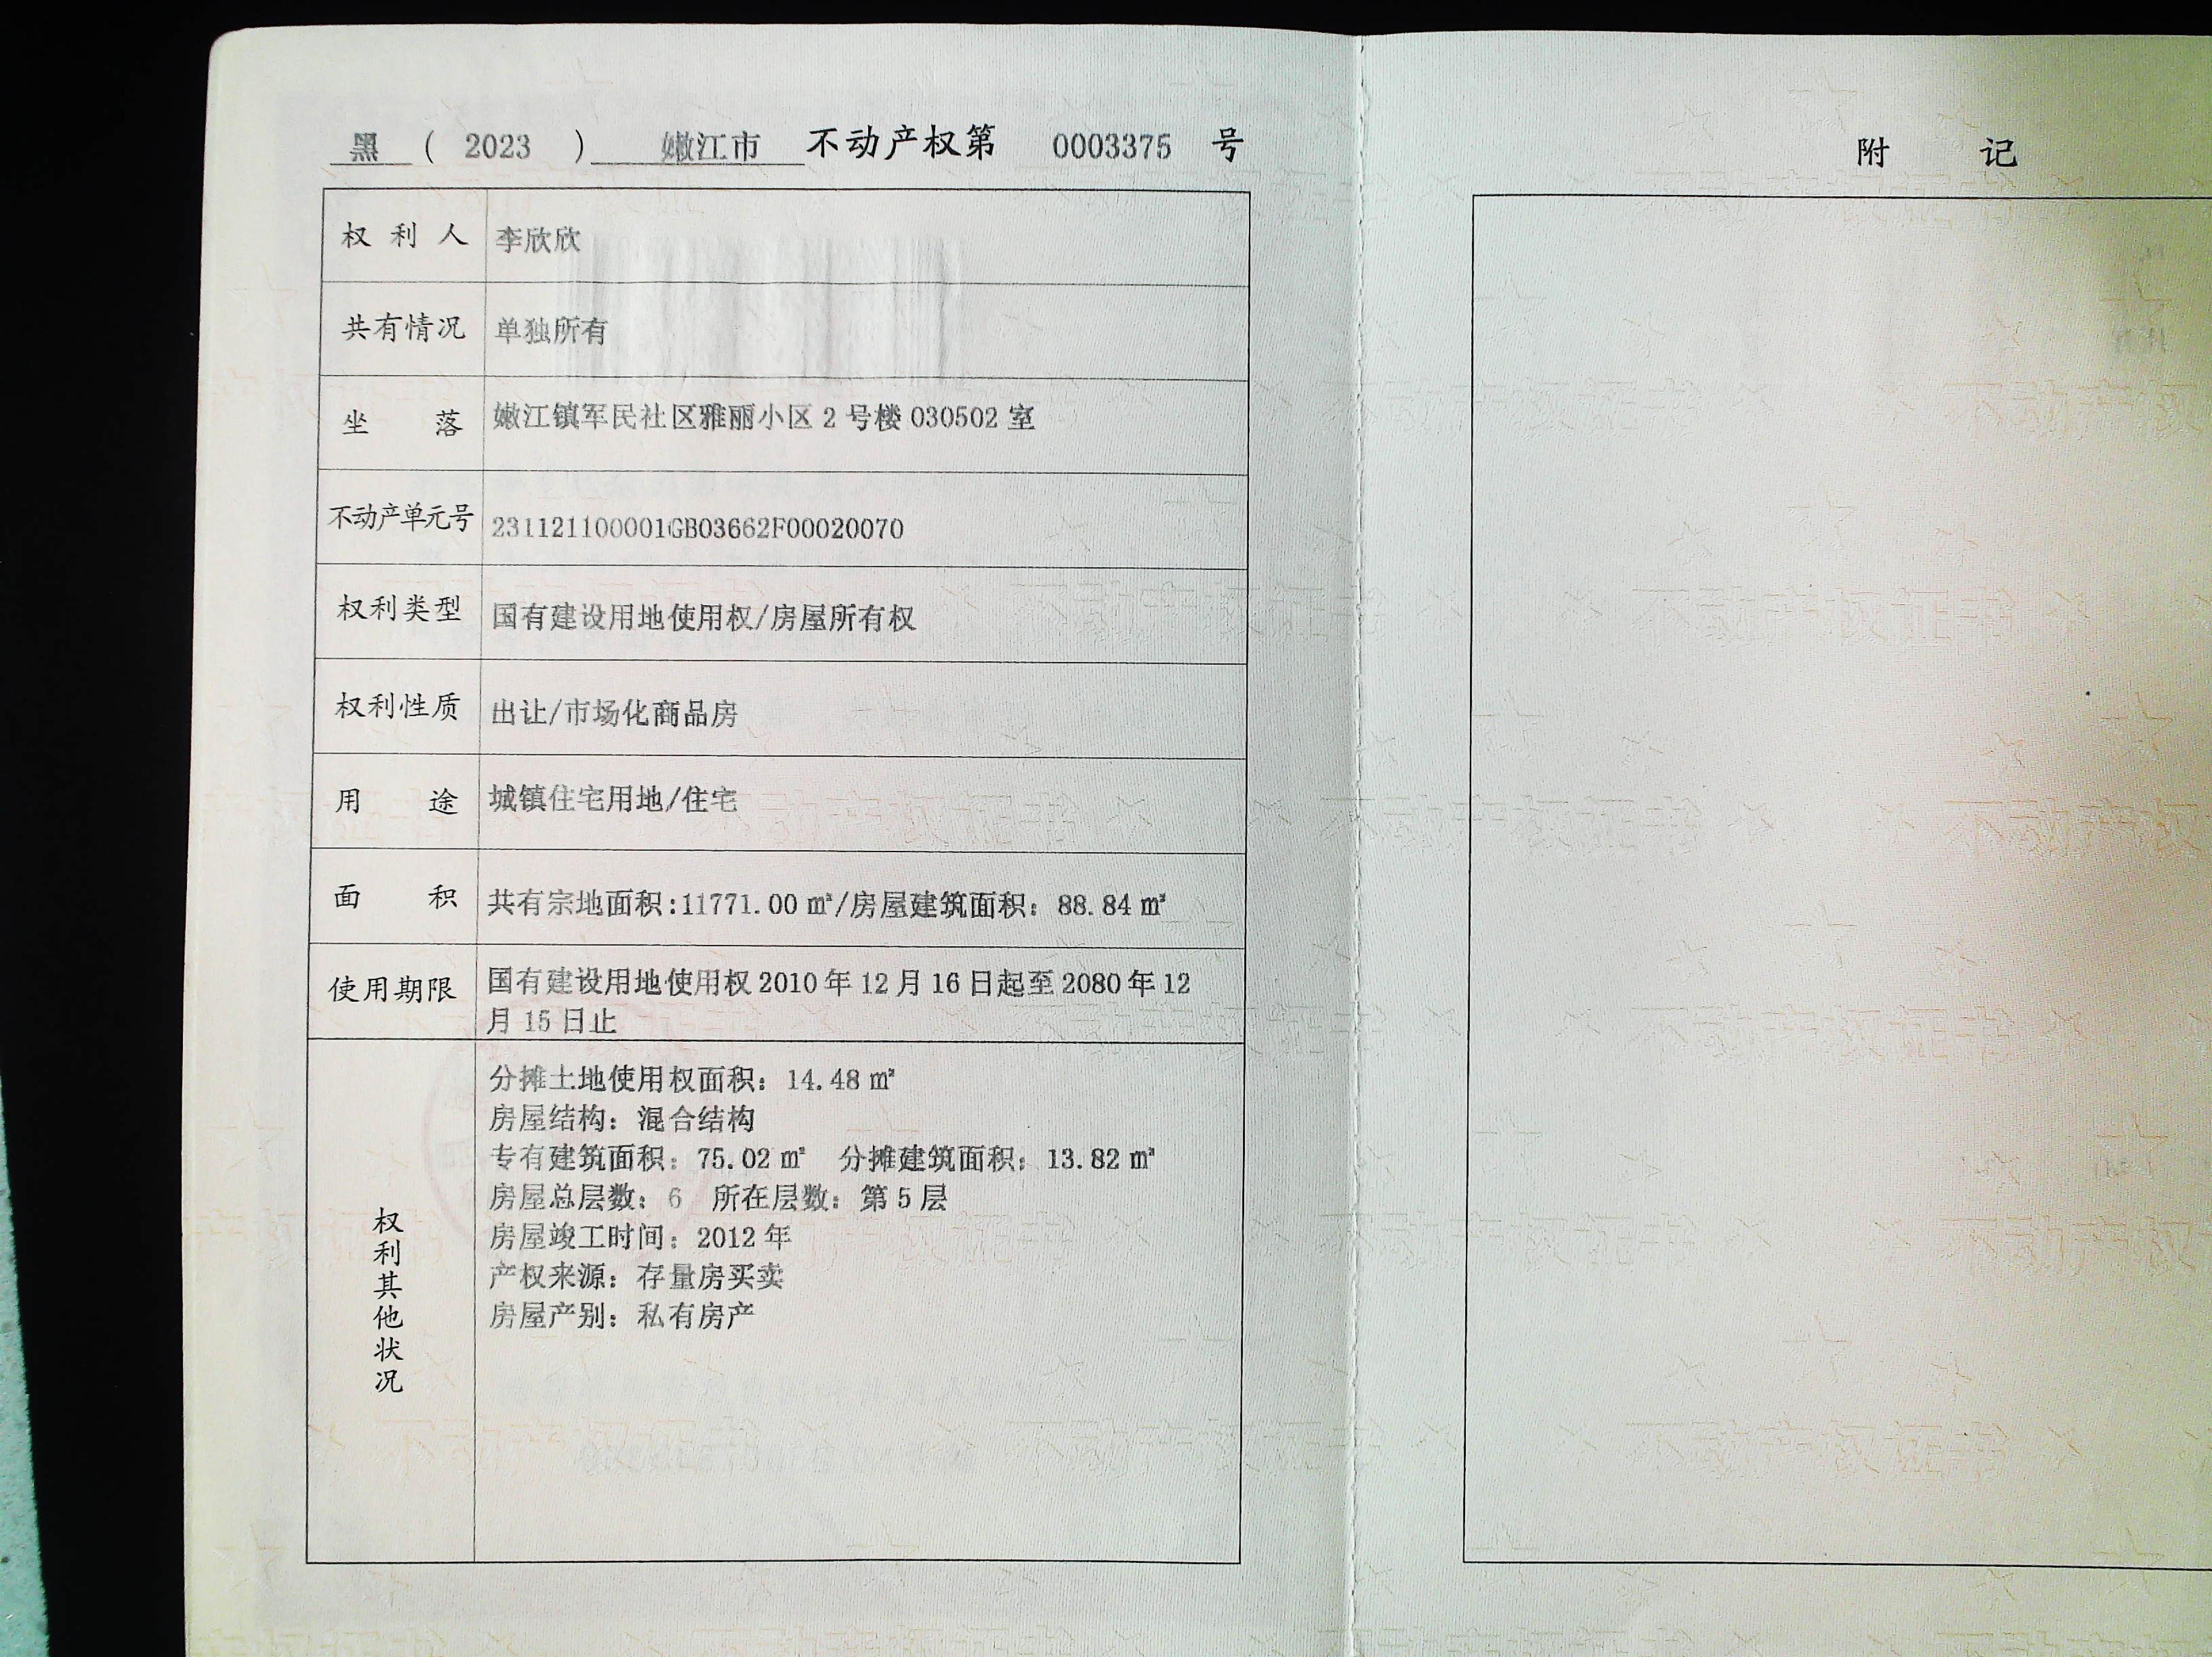 黑 ( 2023 ) 嫩江市 不动产权第 0003375 号
权利人 李欣欣
共有情况 单独所有
坐落 嫩江镇军民社区雅丽小区 2 号楼 030502 室
不动产单元号 231121100001GB03662F00020070
权利类型 国有建设用地使用权/房屋所有权
权利性质 出让/市场化商品房
用途 城镇住宅用地/住宅
面积 共有宗地面积:11771.00 ㎡/房屋建筑面积: 88.84 ㎡
使用期限 国有建设用地使用权 2010 年 12 月 16 日起至 2080 年 12
月 15 日止
权利其他状况
分摊土地使用权面积: 14.48 ㎡
房屋结构: 混合结构
专有建筑面积: 75.02 ㎡ 分摊建筑面积: 13.82 ㎡
房屋总层数: 6 所在层数: 第 5 层
房屋竣工时间: 2012 年
产权来源: 存量房买卖
房屋产别: 私有房产
附记